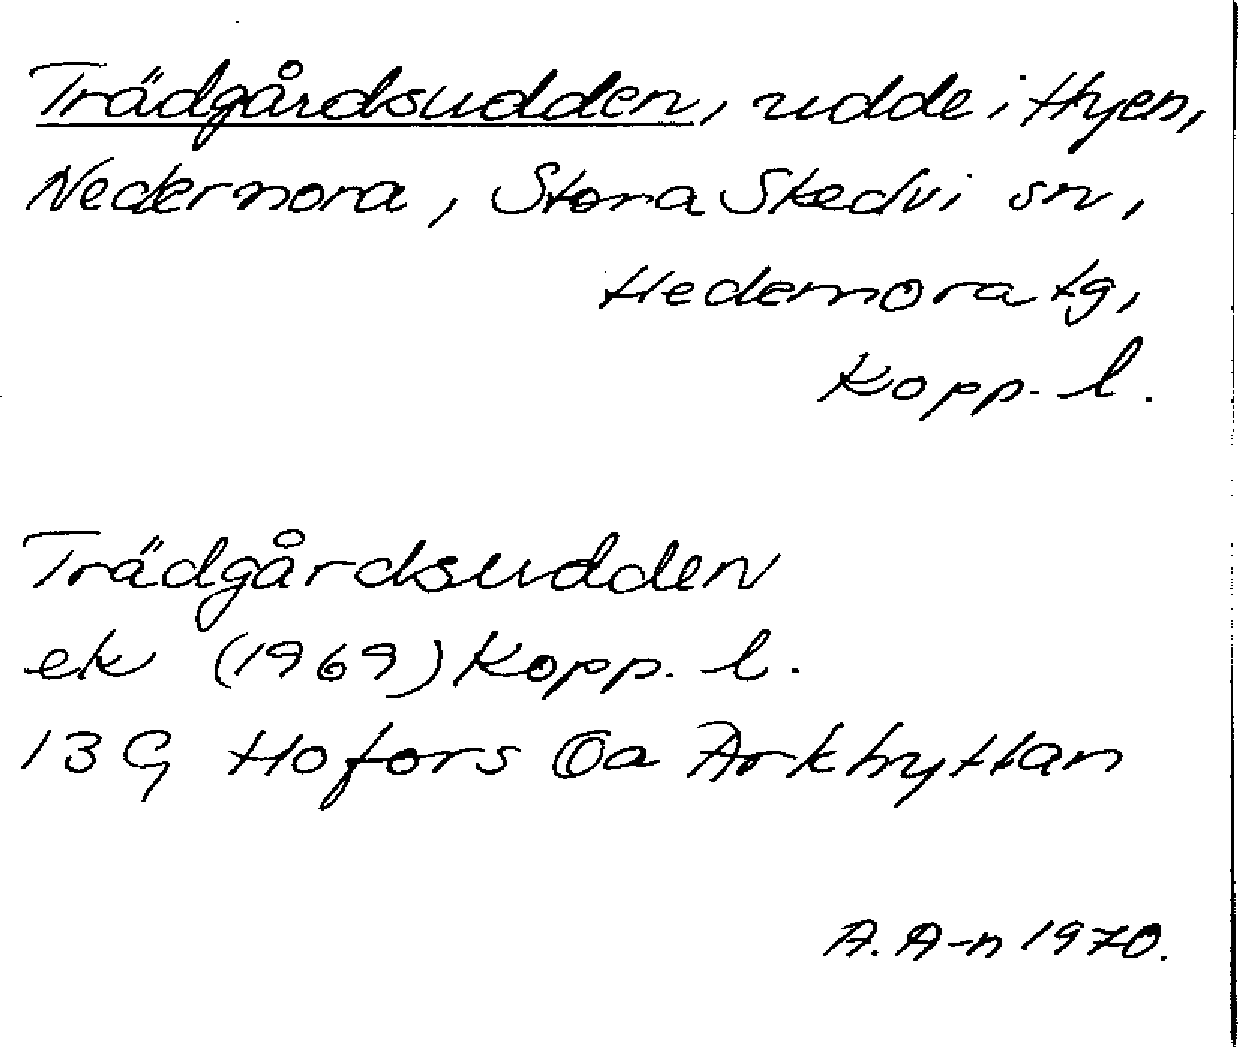 Trädgårdsudden, udde i Hyen,
Nedernora, Stora Skedvi sn,
Hedemora tg,
Kopp. l.
Trädgårdsudden
ek (1969) Kopp. l.
13G Hofors 0a Arkhyttan
A. A-n 1970.